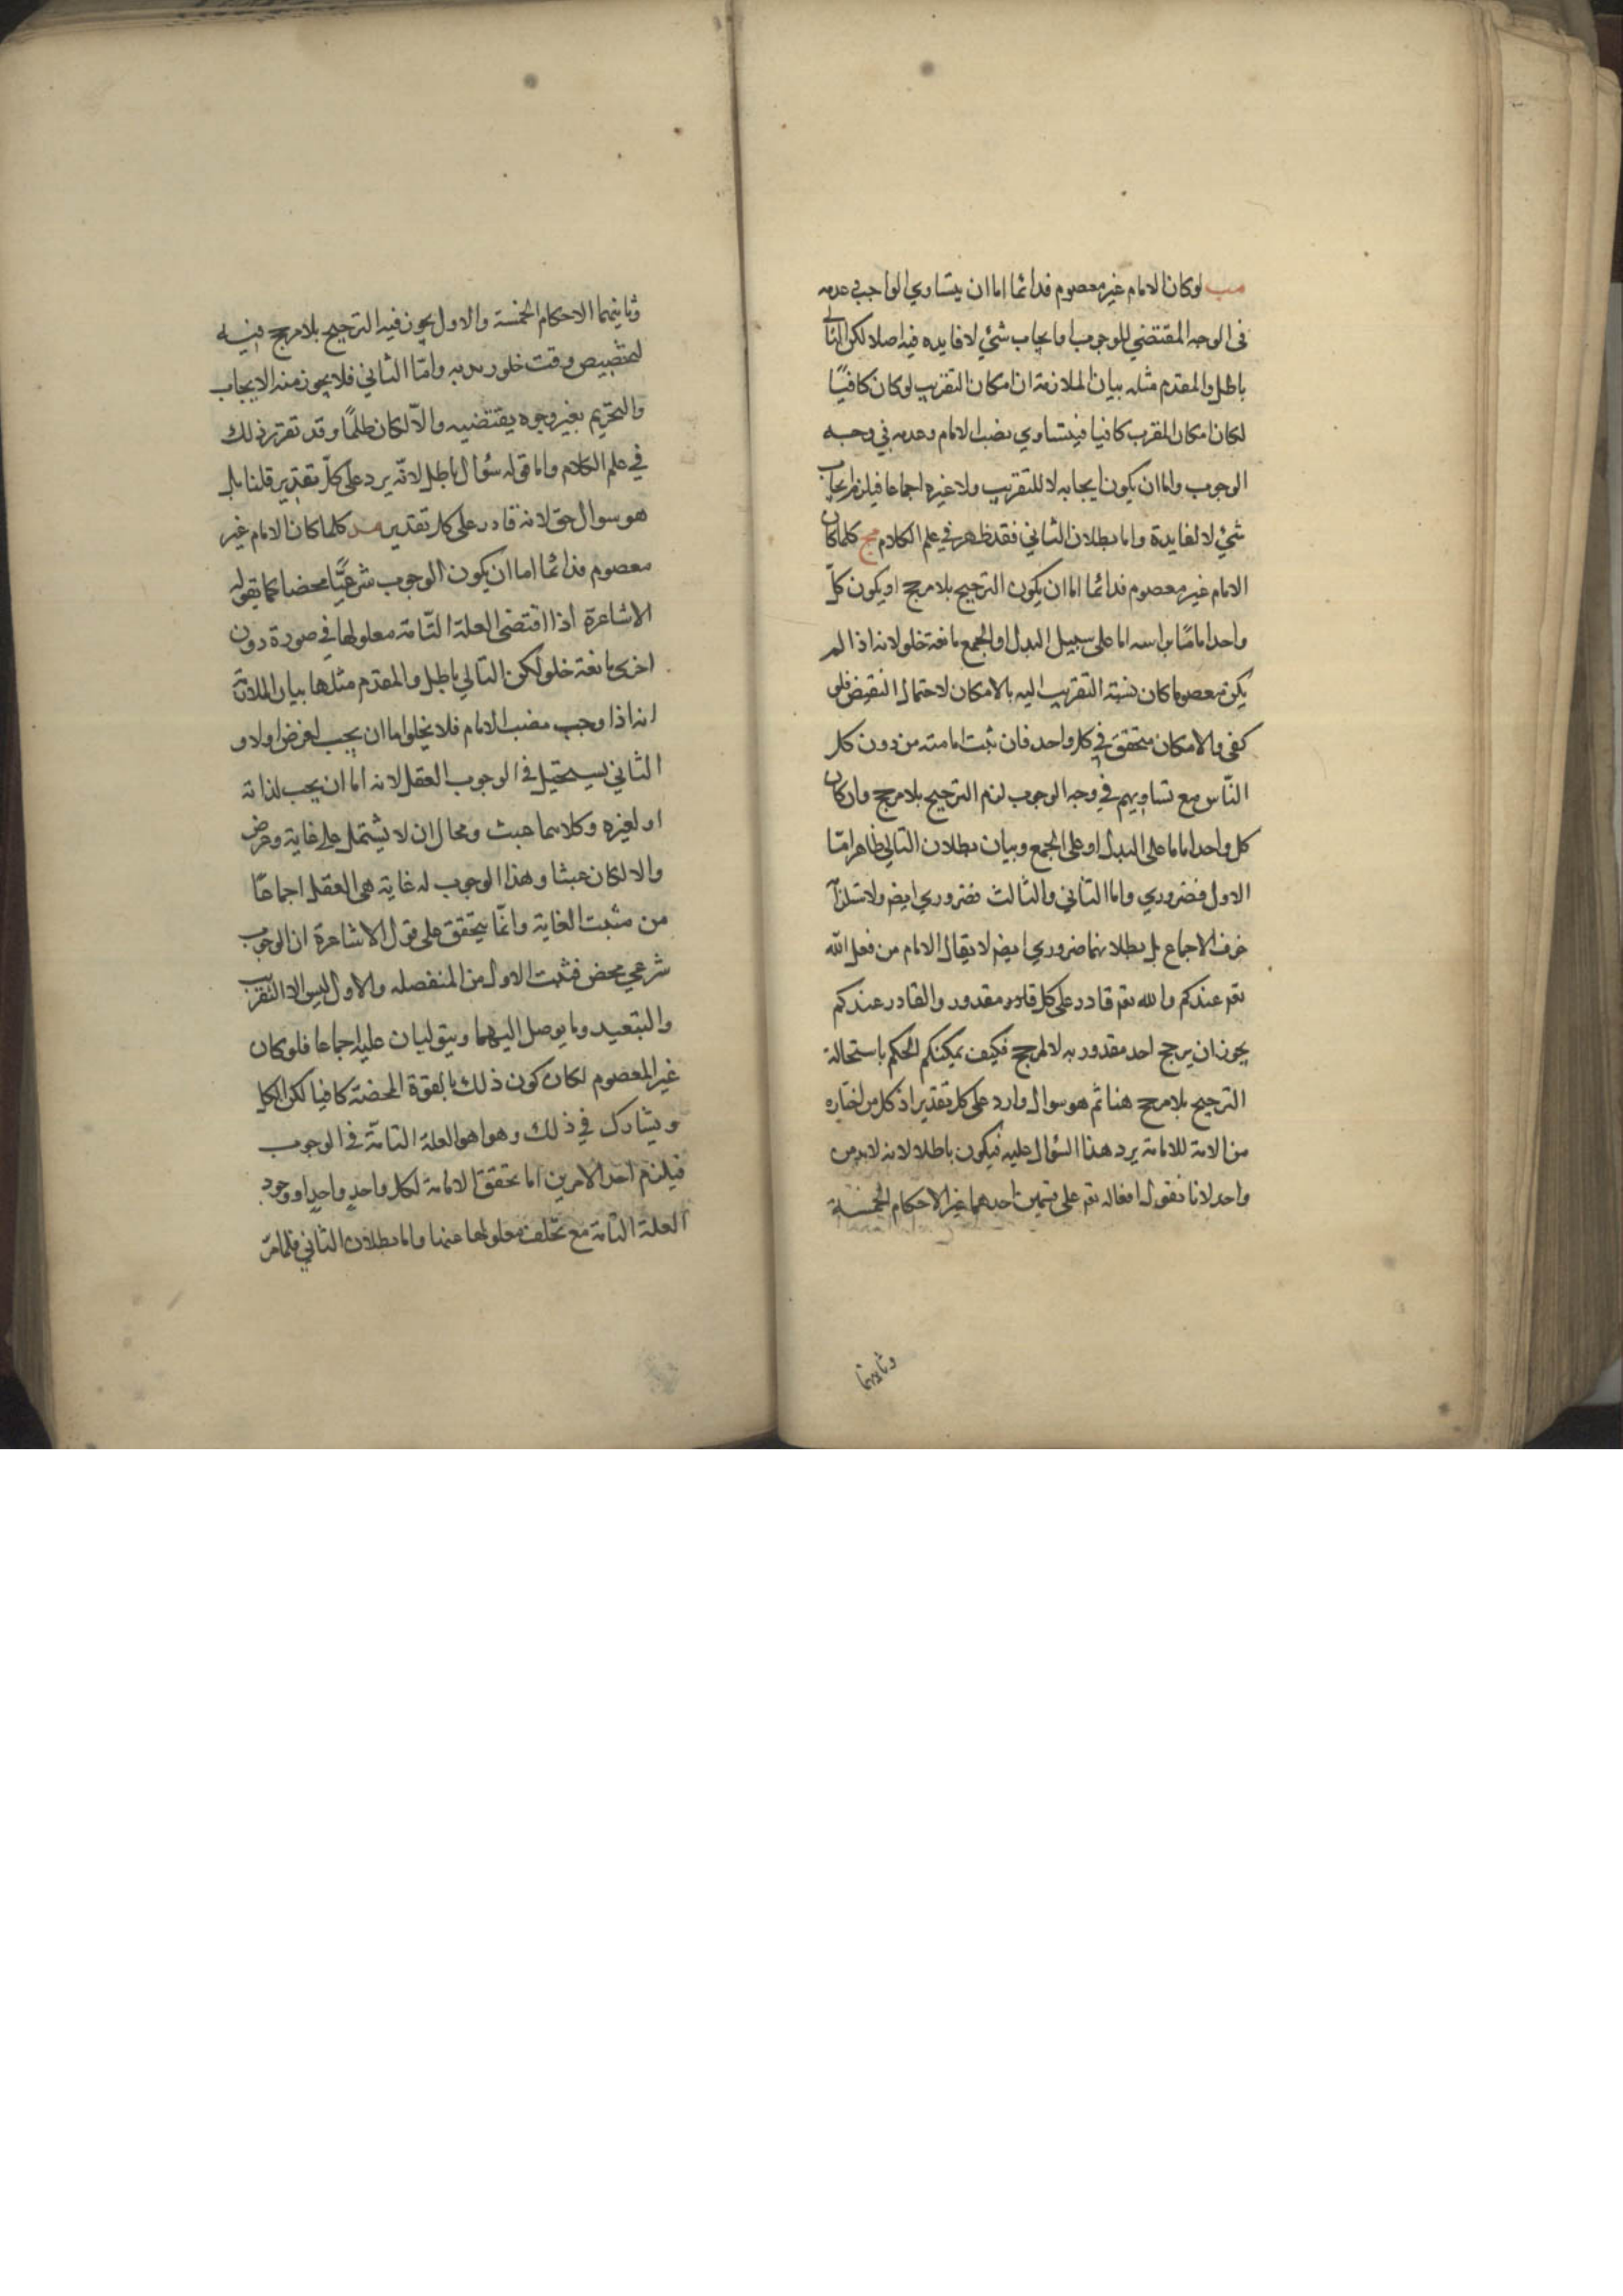 مب لوكان الامام غير معصوم فدائما اما ان يتساوي الواجب في عدمه
في الوجه المقتضي للوجوب او ايجاب شئ لا فايده فيه اصلا لكن التالي
باطل والمقدم مثله بيان الملازمة ان امكان التقريب لو كان كافيًا
لكان امكان المقرب كافيا فيتساوي نصب الامام وعدمه في وجه
الوجوب واما ان يكون ايجابه لا للتقريب ولا غيره اجماعا فيلزم ايجاب
شئ لا لفايدة واما بطلان الثاني فقد ظهر في علم الكلام مج كلما كان
الامام غير معصوم فدائما اما ان يكون الترجيح بلا مرجح او يكون كل
واحد امامًا براسه اما على سبيل البدل او الجمع مانعة خلو لانه اذا لم
يكن معصوما كان نسبة التقريب اليه بالامكان لاحتمال النقيض فلو
كفى والامكان متحقق في كل واحد فان ثبت امامته من دون كل
النّاس مع تساويهم في وجه الوجوب لزم الترجيح بلا مرجح وان كان
كل واحد اماما على البدل او على الجمع وبيان بطلان التالي ظاهر امّا
الاول فضروري واما الثاني والثالث فضروري ايضم ولاستلزام
خرف الاجماع بل بطلانهما ضروري ايضم لا يقال الامام من فعل الله
تعم عندكم والله تعم قادر على كل مقدور والقادر عندكم
يجوز ان يرجح احد مقدوريه لا لمرجح فكيف يمكنكم الحكم باستحالة
الترجيح بلا مرجح هنا ثم هو سوال وارد على كل تقدير اذ كل من اختاره
من الامة للامامة يرد هذا السؤال عليه فيكون باطلا لانه لابد من
واحد لانا نقول افعاله تعم على قسمين احدهما غير الاحكام الخمسة
وثانيهما
وثانيهما الاحكام الخمسة والاول يجوز فيه الترجيح بلا مرجح فيه
لتخصيص وقت خلور يديه وامّا الثاني فلا يجوز منه الايجاب
والتحريم بغير وجوه يقتضيه والّا لكان ظلمًا وقد تقرّر ذلك
في علم الكلام واما قوله سؤال باطل لانّه يرد على كلّ تقدير قلنا بل
هو سوال حق لانه قادر على كل تقدير مد كلما كان الامام غير
معصوم فدائما اما ان يكون الوجوب شرعيًّا محضا كما يقوله
الاشاعرة اذا اقتضى العلة التّامة معلولها في صورة دون
اخرى مانعة خلو لكن التالي باطل والمقدم مثلها بيان الملازمة
انه اذا وجب نصب الامام فلا يخلو اما ان يجب لغرض اولا و
الثاني يستحيل في الوجوب العقل لانه اما ان يجب لذاته
او لغيره وكلاهما عبث ومحال ان لا يشتمل على غاية وغرض
والا لكان عبثا وهذا الوجوب له غاية هي العقل اجماعًا
من مثبت الغاية وانّما يتحقق على قول الاشاعرة ان الوجوب
شرعي محض فثبت الاول من المنفصله والاول ليس الا التقريب
والتبعيد وما يوصل اليهما ويتوليان عليه اجماعا فلو كان
غير المعصوم لكان كون ذلك بالقوة المحضة كافيا لكن الكل
ويشارك في ذلك وهوا هو العلة التامّة في الوجوب
فيلزم احد الامرين اما تحقق الامامة لكل واحدٍ واحدٍ او وجود
العلة التامة مع تخلف معلولها عنها واما بطلان الثاني فلما مرّ